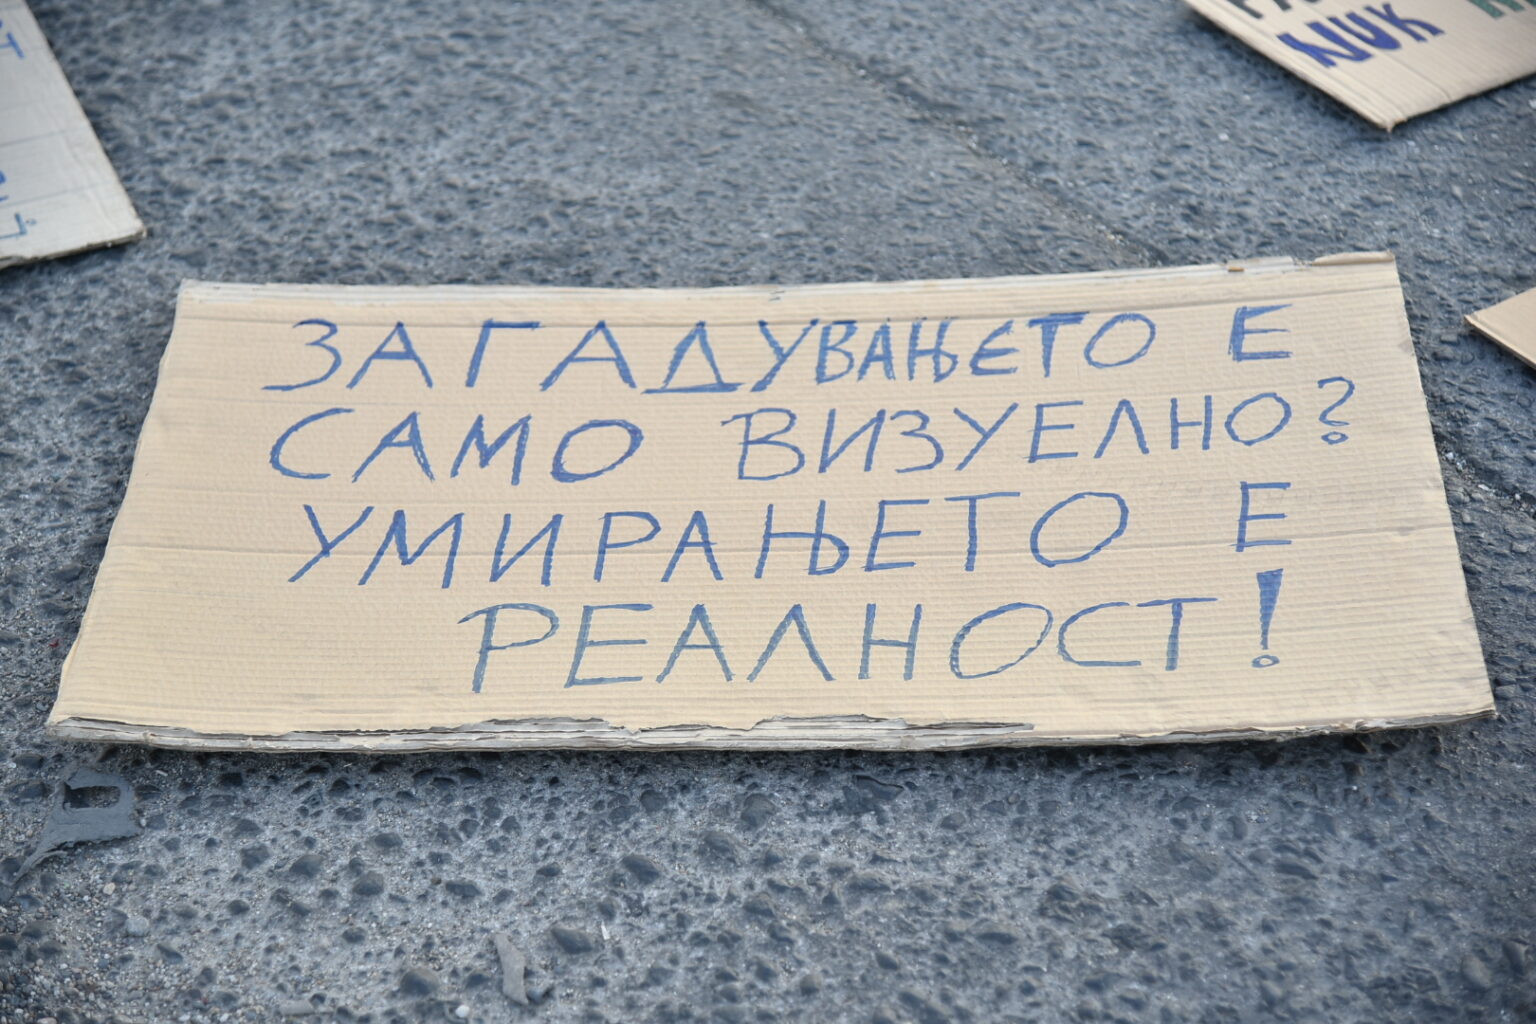 ЗАГАДУВАЊЕТО Е
САМО ВИЗУЕЛНО?
УМИРАЊЕТО Е
РЕАЛНОСТ!